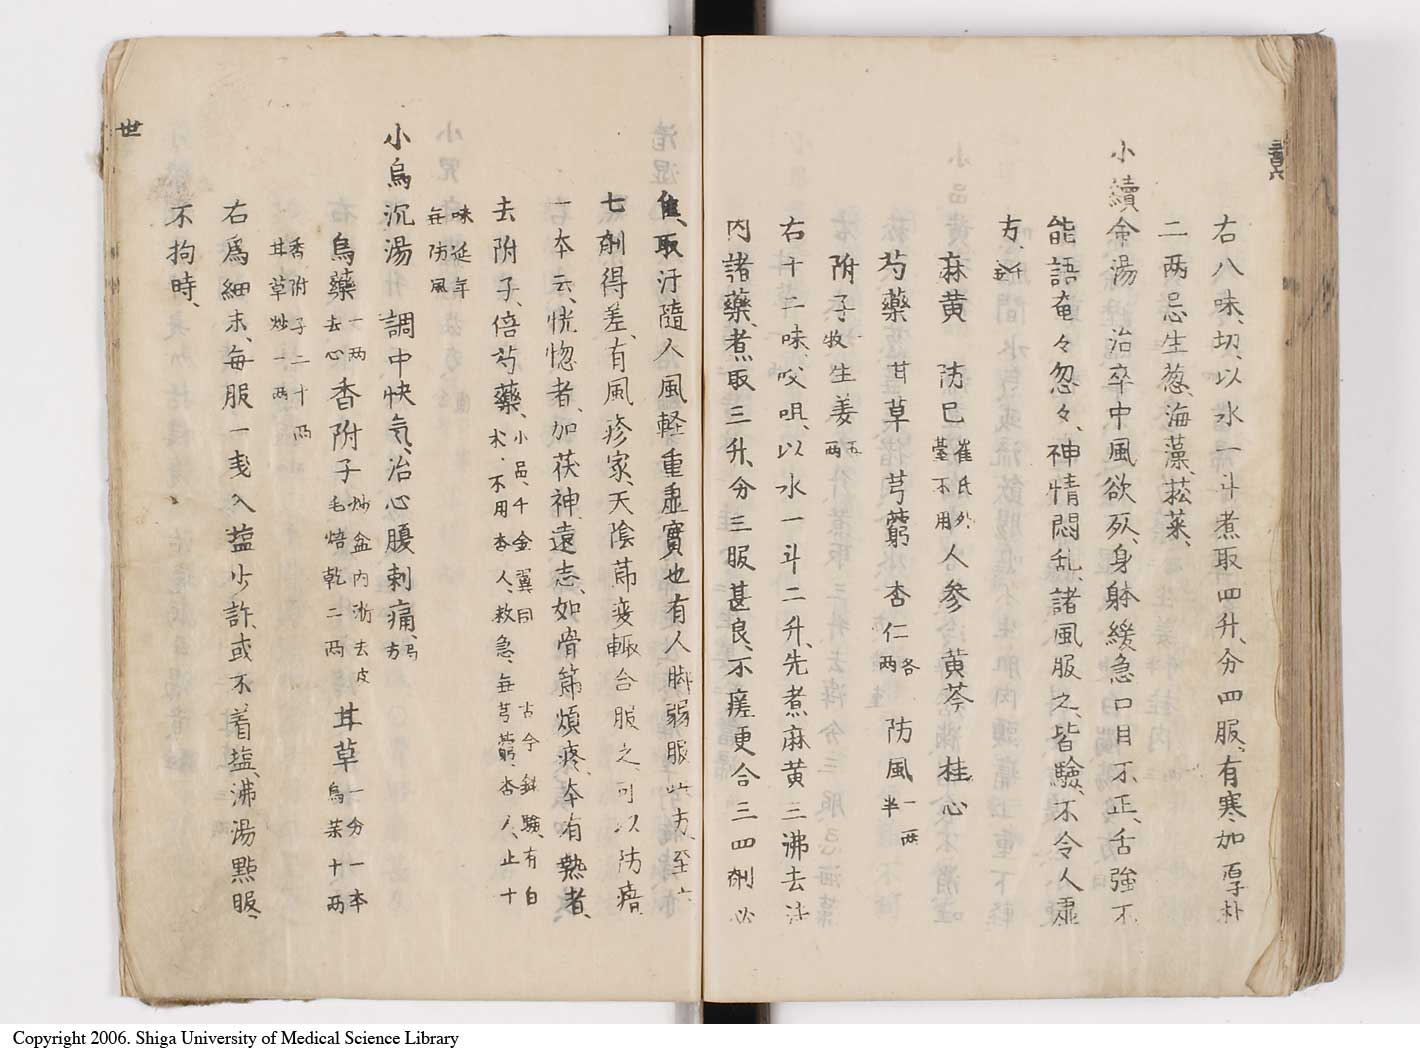 右八味、切、以水一斗煮取四升、分四服、有寒加厚朴
二两、忌生葱、海藻、菘菜、
小續命湯 治卒中風欲死、身躰緩急口目不正、舌強不
能語奄々忽々、神情悶乱、諸風服之、皆驗、不令人虚
方、千金
麻黄 防已崔氏外臺不用人参 黄芩 桂心
芍藥 甘草 芎藭 杏仁各两 防風一两半
附子枚生姜五两
右十二味、㕮咀、以水一斗二升、先煮麻黄三沸去沫
内諸藥、煮取三升、分三服甚良、不瘥更合三四剤必
隹、取汗隨人風軽重虚實也有人脚弱服此方、至六
七剤得差、有風疹家、天陰節変輙合服之、可以防瘖
一本云、恍惚者、加茯神遠志、如骨節煩疼、本有熱者、
去附子、倍芍藥、小品、千金翼同 古今録驗、有白
朮、不用杏人、救急、毎芎藭、杏人、止十
味延年
毎防風
小烏沉湯 調中快気、治心腹刺痛、局方
烏藥一两去心香附子炒盆内浙去皮毛焙乾二两 甘草一分一本烏藥十两
香附子二十两
甘草炒一两
右爲細末、毎服一戔入塩少許、或不着塩、沸湯㸃服、
不拘時、
世
Copyright 2006. Shiga University of Medical Science Library